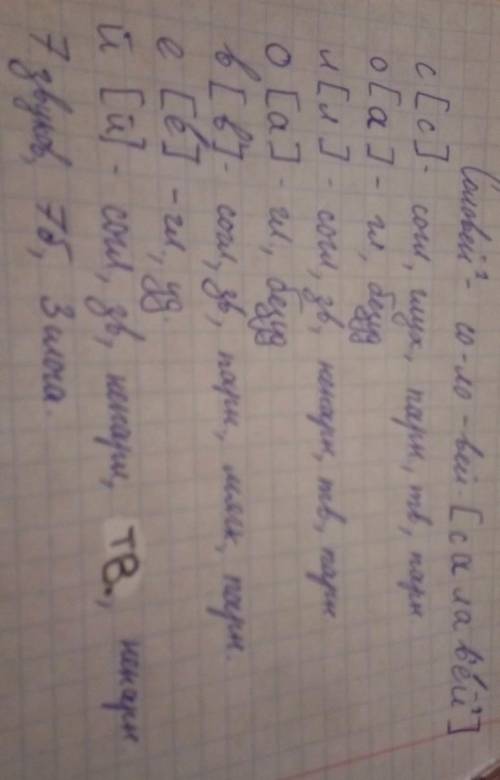 Соловей² - со-ло-вей- [салав'е́й'²]
с [с] - согл, глух, парн, тв, парн
о [а] - гл, безуд
л [л] - согл, зв, непарн, тв, парн
о [а] - гл, безуд
в [в'] - согл, зв, парн, мягк, парн.
е [е́] - гл, уд.
й [й] - согл, зв, непарн, ТВ., непарн
7 звуков, 7б, 3 слога.